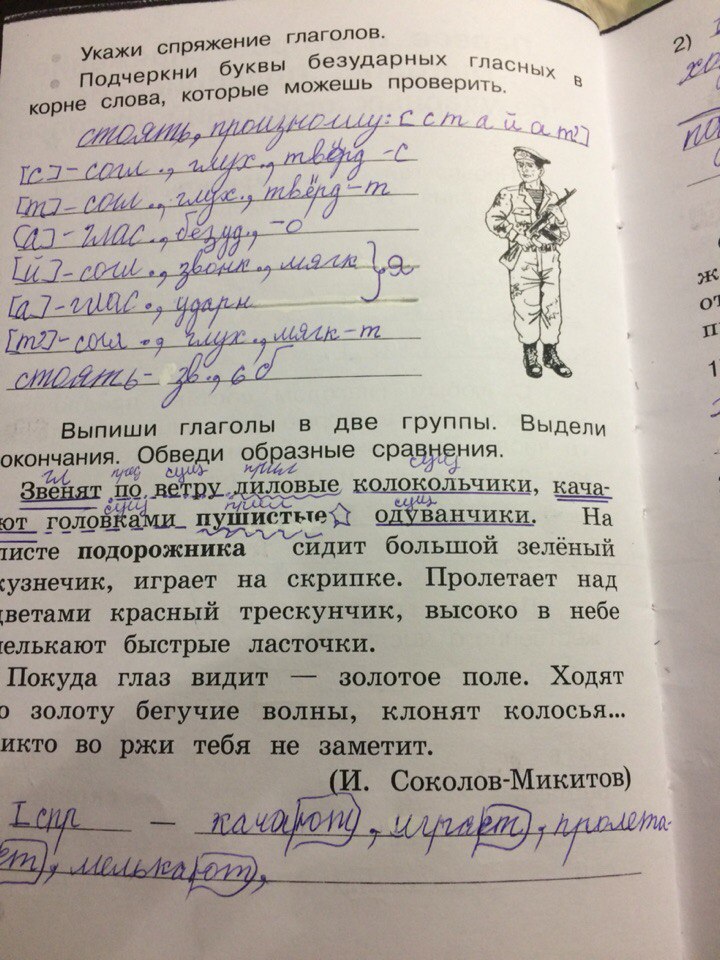 Укажи спряжение глаголов.
Подчеркни буквы безударных гласных в
корне слова, которые можешь проверить.
стоять, произношу: [стайат']
[с]-согл., глух., твёрд -с
[т]-согл., глух., твёрд-т
[а]-глас., безуд., -о
[й]-согл., звонк., мягк } я
[а]-глас., ударн
[т']-согл., глух., мягк-т
стоять- зв., 6 б
Выпиши глаголы в две группы. Выдели
окончания. Обведи образные сравнения.
гл пред сущ прил сущ
Звенят по ветру лиловые колокольчики, кача-
сущ прил сущ
ют головками пушистые одуванчики. На
листе подорожника сидит большой зелёный
кузнечик, играет на скрипке. Пролетает над
цветами красный трескунчик, высоко в небе
мелькают быстрые ласточки.
Покуда глаз видит — золотое поле. Ходят
о золоту бегучие волны, клонят колосья...
икто во ржи тебя не заметит.
(И. Соколов-Микитов)
I спр — качают, играет, пролета-
ет, мелькают,
2)
хо
по
ж
от
п
1